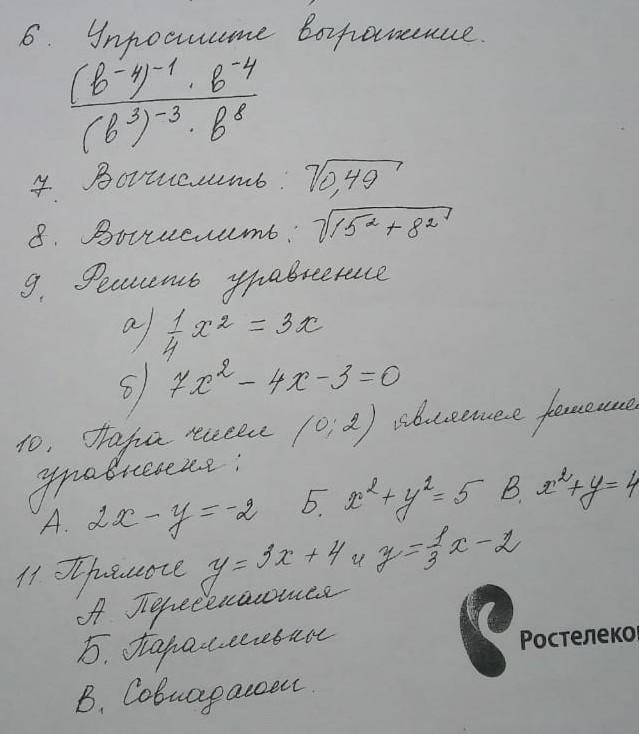 6. Упростите выражение.
(b⁻⁴)⁻¹ · b⁻⁴
(b³)⁻³ · b⁸
7. Вычислить: √0,49
8. Вычислить: √15² + 8²
9. Решить уравнение
а) 1/4 x² = 3x
б) 7x² - 4x - 3 = 0
10. Пара чисел (0; 2) является решение
уравнения:
А. 2x - y = -2 Б. x² + y² = 5 В. x² + y = 4
11 Прямые y = 3x + 4 и y = 1/3 x - 2
А. Пересекаются
Б. Параллельны
В. Совпадают.
Ростелеко